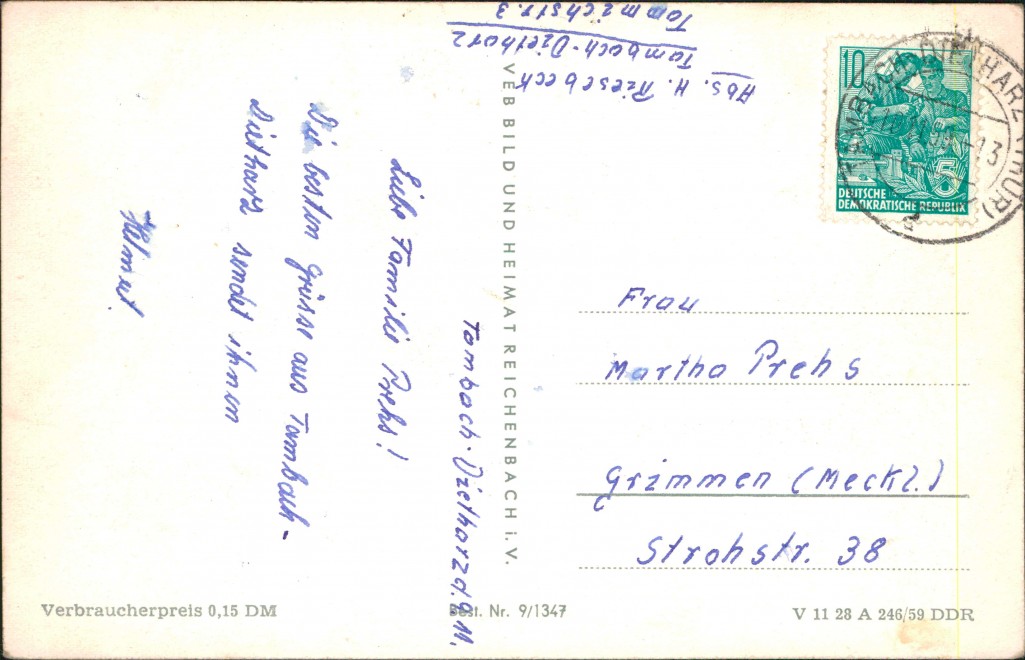 Abs. H. Riesebeck
Tambach-Dietharz
Tammichstr. 3
Tambach-Dietharz d. 9.11.
Liebe Familie Prehs!
Die besten Grüsse aus Tambach-
Dietharz sendet ihnen
Helmut.
VEB BILD UND HEIMAT REICHENBACH i. V.
10
DEUTSCHE
DEMOKRATISCHE REPUBLIK
5
TAMBACH-DIETHARZ (THÜR)
Frau
Martha Prehs
Grimmen (Meckl.)
Strohstr. 38
Verbraucherpreis 0,15 DM
Best. Nr. 9/1347
V 11 28 A 246/59 DDR